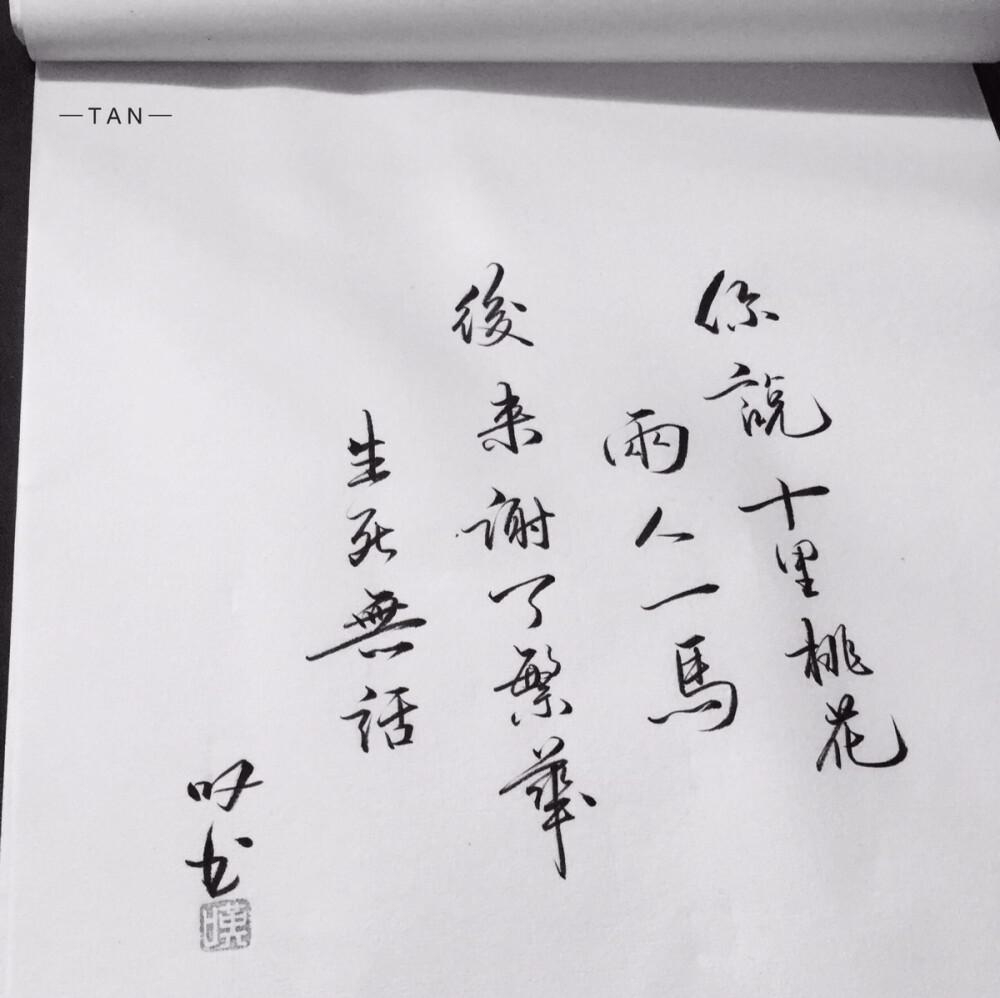 —TAN—
你說十里桃花
兩人一馬
後来謝了繁華
生死無話
叹书
嘆